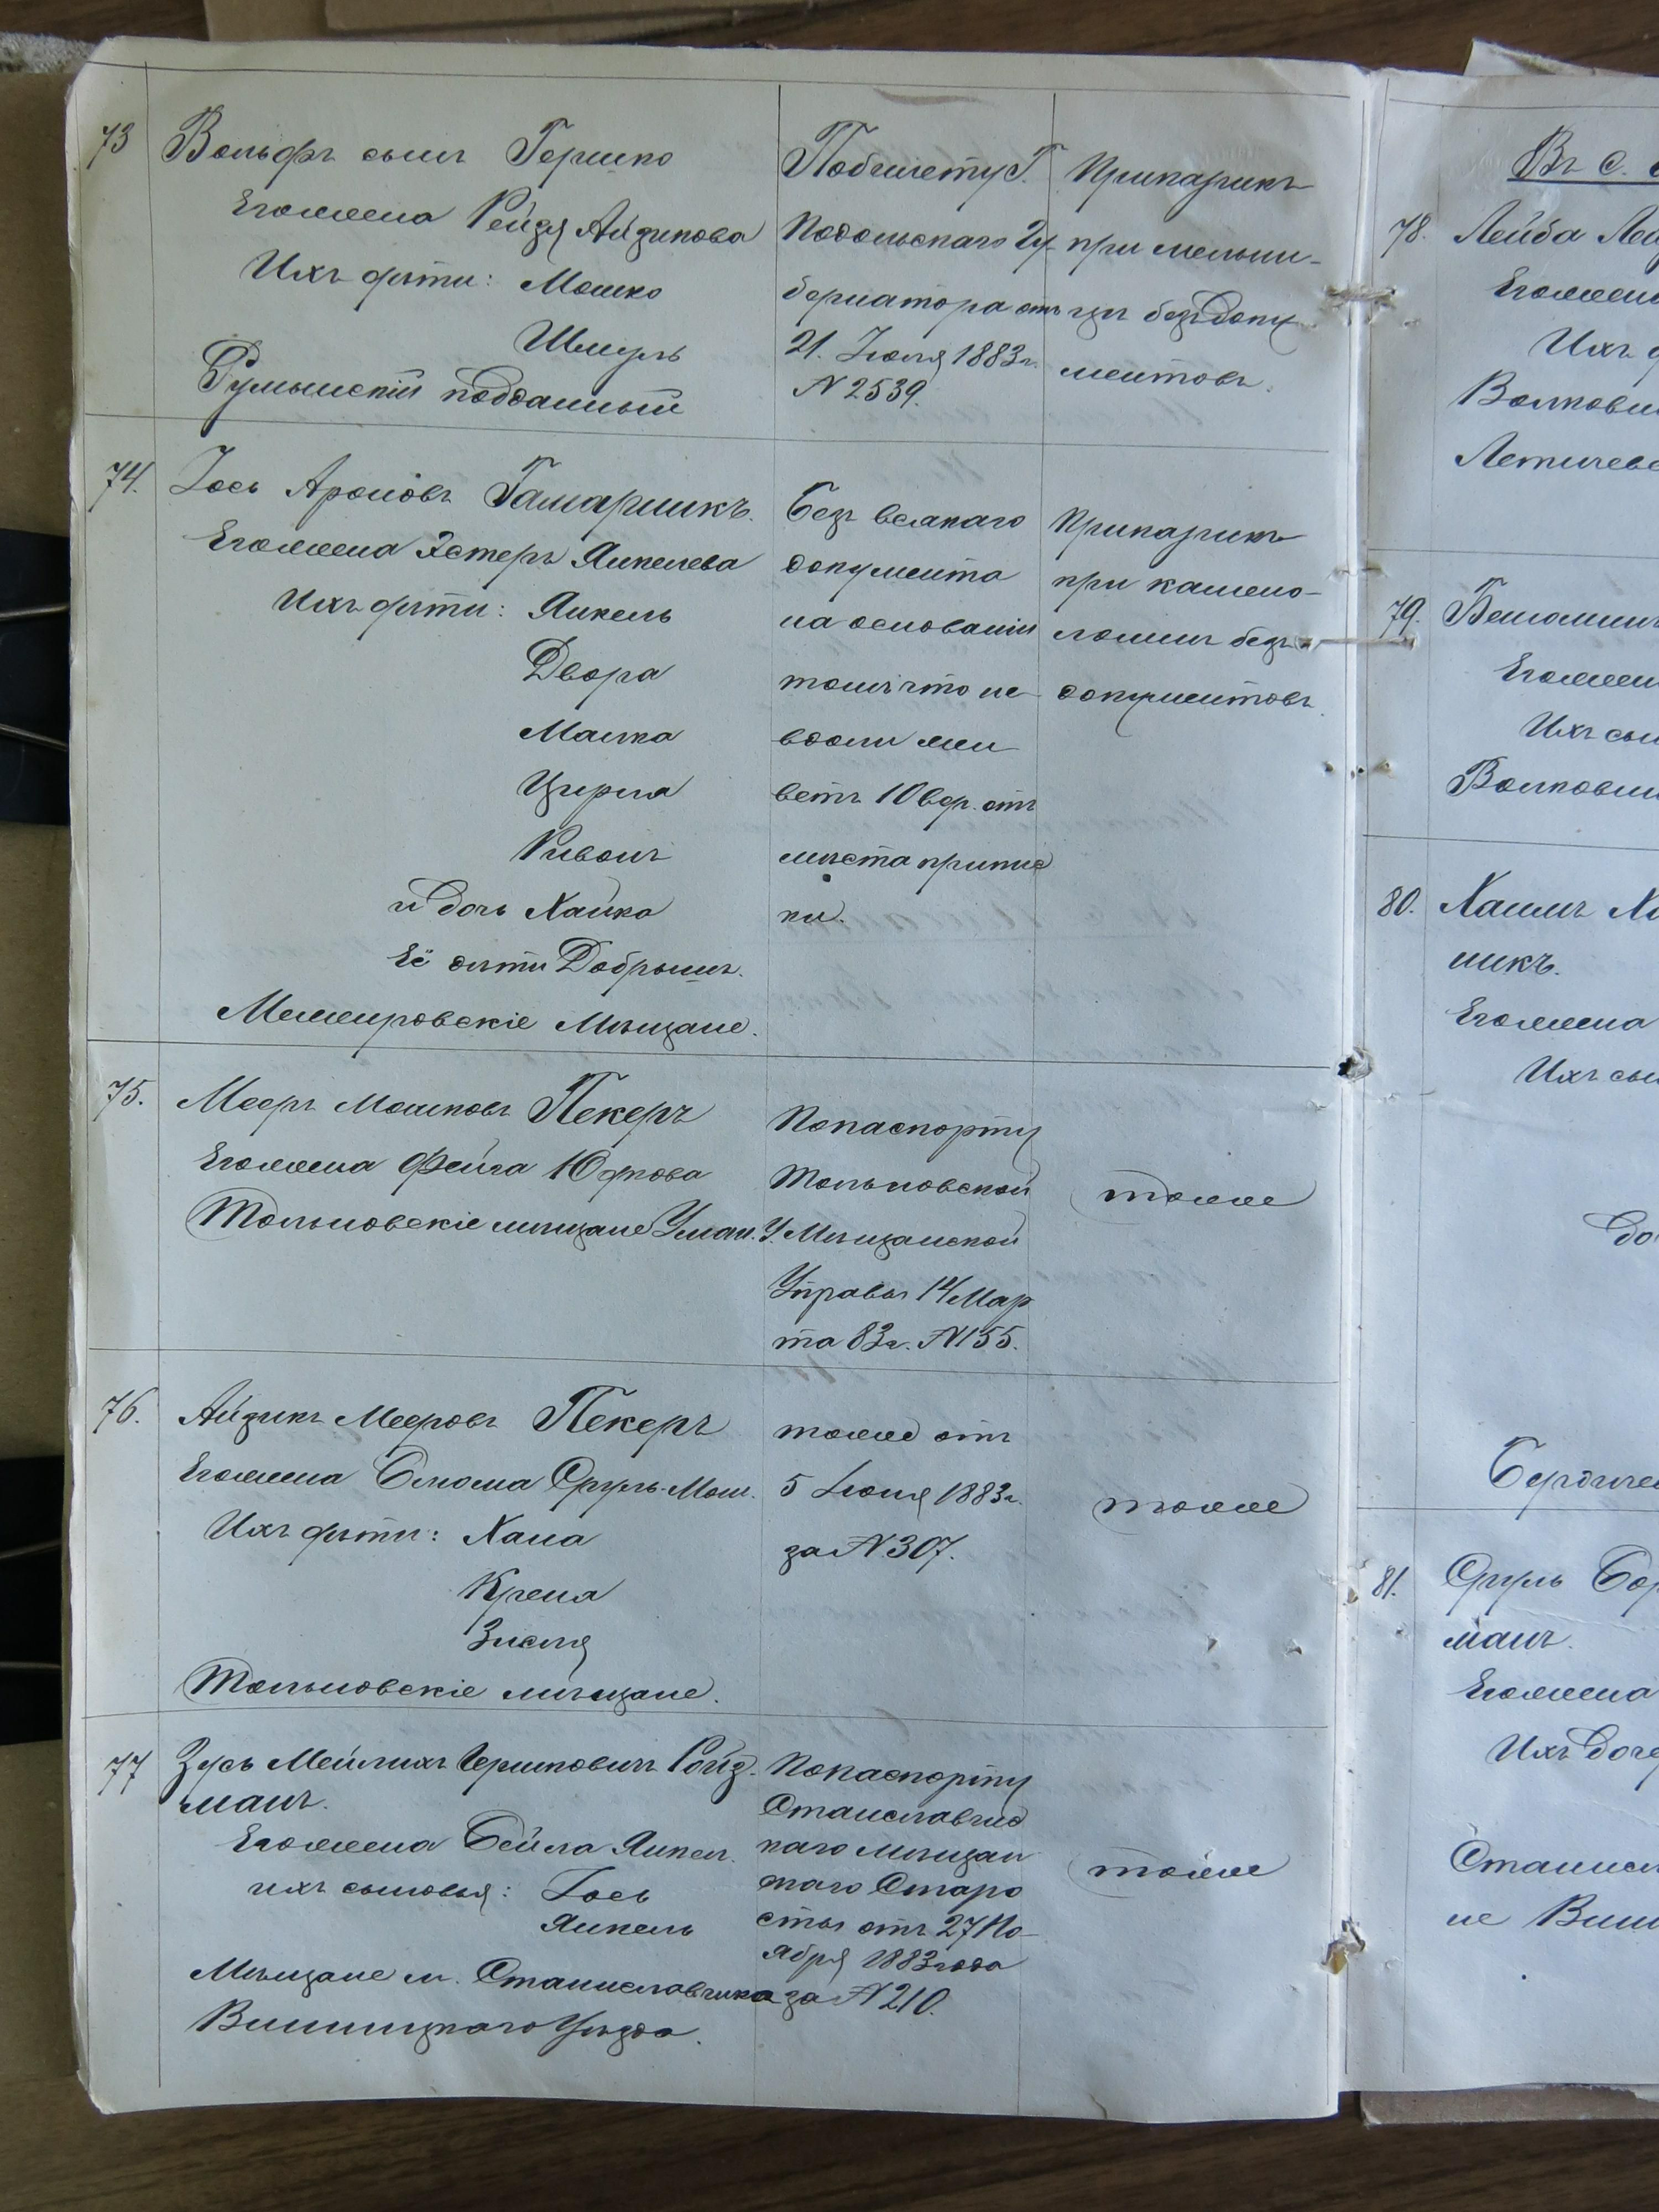 73 Вольфъ сынъ Гершко
Его жена Рейзя Айзикова
Ихъ дѣти: Мошко
Шмуль
Румынскій подданный
По билету Г.
Подольскаго Гу-
бернатора отъ
21. Іюля 1883 г.
N 2539.
Приказчикъ
при мельни-
цѣ безъ доку-
ментовъ.
74. Іось Ароновъ Гамарникъ.
Его жена Эстеръ Янкелева
Ихъ дѣти: Янкель
Двора
Малка
Цирла
Ривонъ
и дочь Хайка
Её дѣти Добрышъ.
Немировскіе Мѣщане.
Безъ всякаго
документа
на основаніи
томъ что не-
вдали жи
ветъ 10 вер. отъ
мѣста припис
ки.
Приказчикъ
при камено-
ломнѣ безъ
документовъ.
75. Мееръ Мошковъ Пекеръ
Его жена Фейга Юдкова
Тольновскіе мѣщане Уман. У.
По паспорту
Тольновской
Мѣщанской
Управы 14 Мар
та 83 г. N 155.
тоже
76. Айзикъ Мееровъ Пекеръ
Его жена Слюма Сруль-Мош.
Ихъ дѣти: Хана
Креня
Зисля
Тольновскіе мѣщане.
тоже отъ
5 Іюня 1883 г.
за N 307.
тоже
77 Зусь Мейлихъ Гершковичъ Ройз-
манъ.
Его жена Бейла Янкел.
ихъ сыновья: Іось
Янкель
Мѣщане м. Станиславчика
Винницкаго Уѣзда.
По паспорту
Станиславчис
каго мѣщан
скаго Старо
сты отъ 27 Но-
ября 1883 года
за N 210.
тоже
Въ с.
78. Лейба
Его жена
Ихъ
79.
Его жена
Ихъ сын
80. Хаимъ
никъ.
Его жена
Ихъ сын
до
Бердиче
81. Сруль
манъ.
Его жена
Ихъ доче
Станисл
не Винн